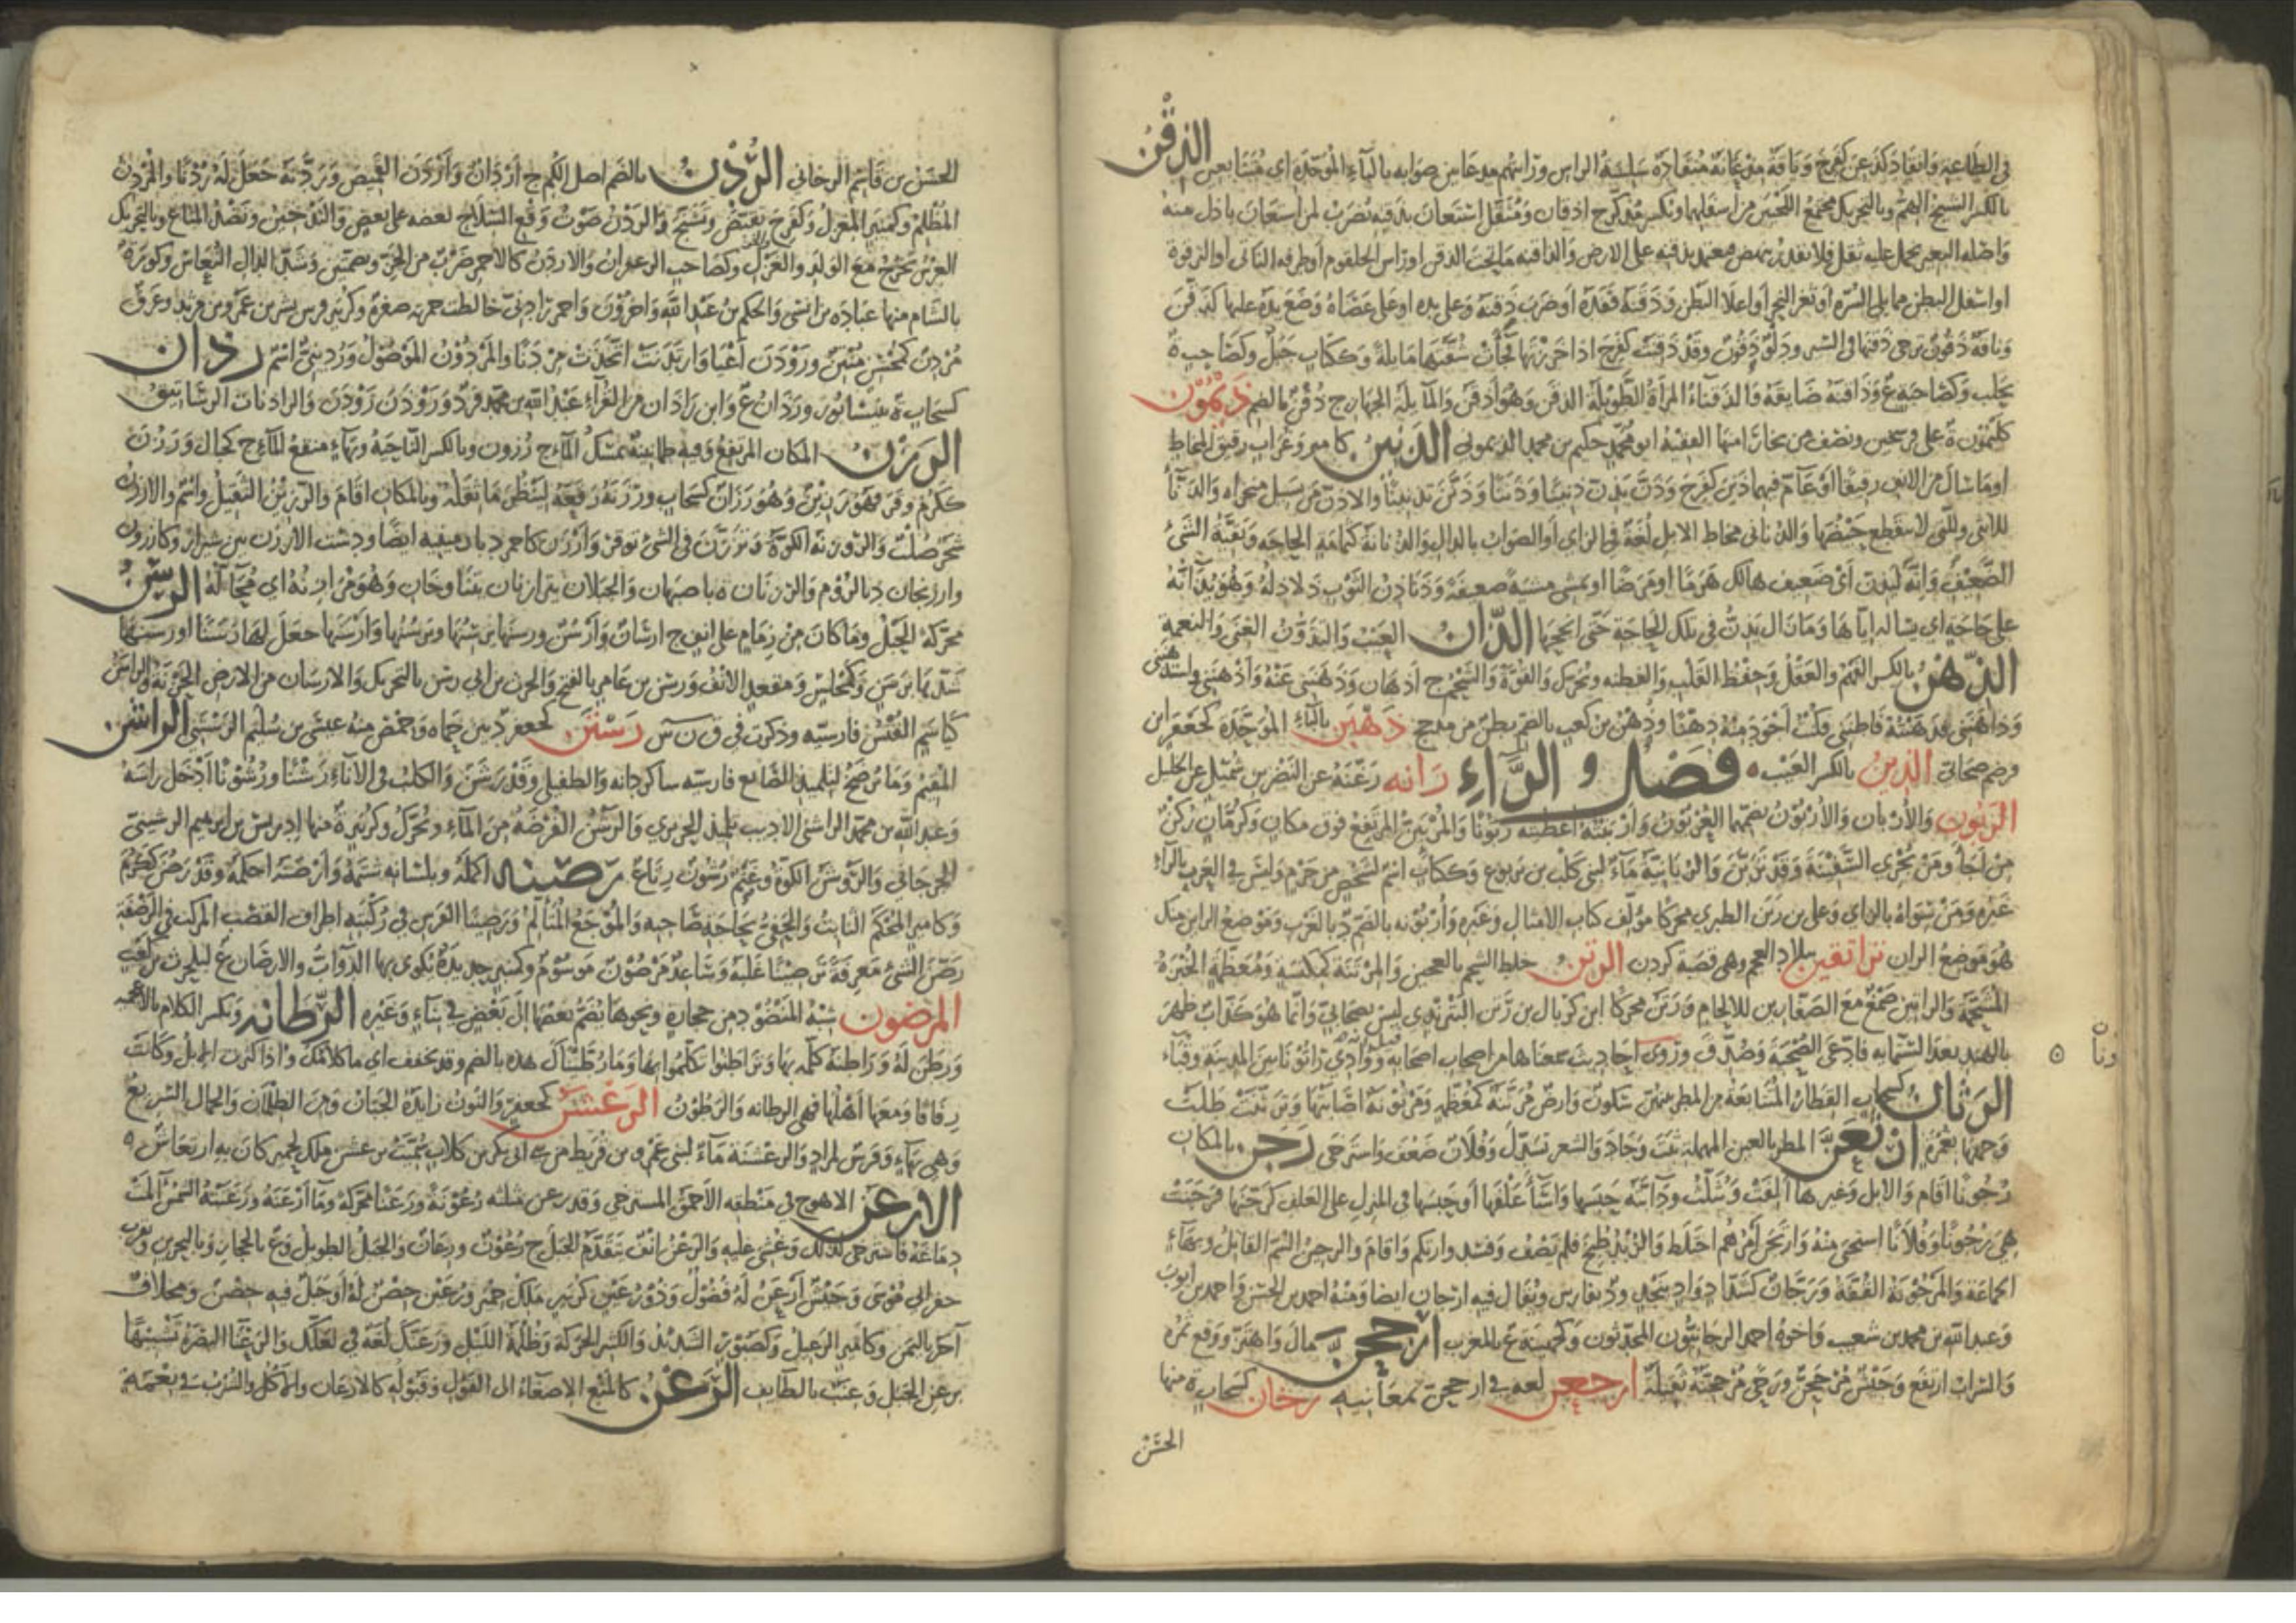 في الطاعة وانقاد كذعن كفرح وناقة مذعانة منقادة سلسة الراس ورايتهم مذعانين صوابه بالباء الموحدة اى متتابعين الذقن
بالكسر الشيخ الهم وبالتحريك مجتمع اللحيين من اسفلهما ويكسر مذكر ج اذقان ومثقل استعان بذقنه يضرب لمن استعان باذل منه
واصله البعير يحمل عليه ثقل فلا يقدر ينهض فيعتمد بذقنه على الارض والذاقنة ما تحت الذقن او راس الحلقوم او طرفه الناتى او الترقوة
او اسفل البطن مما يلي السرة او ثغر النحر او اعلا البطن وذقنه قفده او ضرب ذقنه وعلى يده او على عصاه وضع ذقنه عليها كذقن
وناقة ذقون ترخي ذقنها في السير ودلو ذقون وقد ذقنت كفرح اذا خرزتها فجات شفتها مايلة وككتاب جبل وكصاحبة ة
بحلب وكصاحبة ع وذاقنه ضايقه والذقناء المراة الطويلة الذقن وهو اذقن والمايلة الجهاز ج ذقن بالضم ذيمون
كليمون ة على فرسخين ونصف من بخارا منها الفقيه ابو محمد حكيم بن محمد الذيموني الذنين كامير وغراب رقيق المخاط
او ما سال من الانف رقيقا او عام فيهما ذن كفرح وذن يذن ذنينا وذننا وذنن تذنينا والاذن من يسيل منخراه والذناء
للانثى وللتي لا ينقطع حيضها والذناني مخاط الابل لغة في الزاى او الصواب بالذال والذنانة كثمامة الحاجة وبقية الشئ
الضعيف وانه ليذن اى ضعيف هالك هرما او مرضا او يمشي مشية ضعيفة وذناذن الثوب ذلاذله وهو يذانه
على حاجة اى يساله اياها وما زال يذن في تلك الحاجة حتى انجحها الذان العيب والتذون الغنى والنعمة
الذهن بالكسر الفهم والعقل وحفظ القلب والفطنة ويحرك والقوة والشحم ج اذهان وذهنني عنه واذهنني واستذهنني
وذاهنني فذهنته فاطنني فكنت اجود منه ذهنا وذهن بن كعب بالضم بطن من مذحج ذهبن بالباء الموحدة كجعفر ابن
قرضم صحابي الذين بالكسر العيب فصل الراء رانه رعنه عن النضر بن شميل عن الخليل
الربون والاربان والاربون بضمهما العربون واربنته اعطيته ربونا والمرتبن المرتفع فوق مكان وكرمان ركن
من اجأ ومن يجري السفينة وقد تربن والربانية ماء لبني كلب بن يربوع وككتاب اسم لشخص من جرم وليس في العرب بالراء
غيره ومن سواه بالزاى وعلي بن ربن الطبري محركا مؤلف كتاب الامثال وغيره واربونه بالضم د بالغرب وموضع الران منك
هو موضع الران تراتقين ببلاد العجم وهي قصبة كردن الرتن خلط الشحم بالعجين والمرتنة كمكنسة ومعظمة الخبزة
المشحمة والراتين صمغ مع الصفارين للالحام ورتن محركا ابن كربال بن رتن البترندي ليس بصحابي وانما هو كذاب ظهر
بالهند بعد الستماية فادعى الصحبة وصدق وروى احاديث سمعناها من اصحاب اصحابه ووادي راتونا بين المدينة وقباء
الرثان كسحاب القطار المتتابعة من المطر بينهن سكون وارض مرثنة كمعظم ومرثونة اصابتها وترثنت طلت
وجهها بغمرة ارثعن المطر بالعين المهملة ثبت وجاد والشعر تسدل وفلان ضعف واسترخى رجن بالمكان
رجونا اقام والابل وغيرها الفت وثلث ودابته حبسها واساء علفها او حبسها في المنزل على العلف كرجنها فرجنت
هي رجونا وفلانا استحيى منه وارتجن امرهم اختلط والزبد طبخ فلم يصف وفسد وارتكم واقام والرجين السم القاتل وبهاء
الجماعة والمرجونة القفة ورجان كشداد واد بنجد ود بفارس ويقال فيه ارجان ايضا ومنه احمد بن الحسن واحمد بن ايوب
وعبد الله بن محمد بن شعيب واخوه احمد الرجانيون المحدثون وكجهينة ع بالمغرب ارجحن مال واهتز ووقع بمرة
والسراب ارتفع وجيش مرجحن ورحى مرجحنة ثقيلة ارجعن لغة في ارجحن بمعانيه رخان كسحاب ة منها
الحسن
الحسن بن قاسم الرخاني الردن بالضم اصل الكم ج اردان واردن القميص وردنه جعل له ردنا والمردن
المظلم وكمنبر المغزل وكفرح تقبض وتشنج والردن صوت وقع السلاح بعضه على بعض والتدخين ونضد المتاع وبالتحريك
الغرس يخرج مع الولد والغزل وكصاحب الزعفران والاردن كالاحمر ضرب من الخز وبضمتين وشد الدال النعاس وكورة
بالشام منها عبادة بن نسي والحكم بن عبد الله واخرون واحمر رادني خالطت حمرته صفرة وكزبير فرس بشر بن عمرو بن مرثد وعرق
مردن كمحسن منتن ورودن اعيا وارتدنت اتخذت مردنا والمردون الموصول وردينى اسم رذان
كسحاب ة بنيسابور ورذان ع وابن راذان من القراء عبد الله بن محمد فرد وروذن روذن والراذنات الرساتيق
الرزن المكان المرتفع وفيه طمانينة تمسك الماء ج رزون وبالكسر الناحية وبهاء منقع الماء ج كجبال ورزن
ككرم وقر فهو رزين وهو رزان كسحاب ورزنه رفعه لينظر ما ثقله وبالمكان اقام والرزين الثقيل واسم والارزن
شجر صلب والروزنة الكوة وترزن في الشئ توقر وارزن كاحمر د بارمينية ايضا ودشت الارزن بين شيراز وكازرون
وارزنجان د بالروم والرزنان ة باصبهان والجبلان يترازنان يتناوحان وهو مرازنه اى محاله الرسن
محركة الحبل وما كان من زمام على انف ج ارسان وارسن ورسنها يرسنها ويرسنها وارسنها جعل لها رسنا او رسنها
شدها برسن وكمجلس ومقعد الانف ورسن بن عامر بالفتح والحرث بن ابي رسن بالتحريك والارسان من الارض الحزنة والراسن
كياسم القنس فارسية وذكرت في ق ن س رستن كجعفر د بين حماه وحمص منه عيسى بن سليم الرستني الراشن
المقيم وما يرضخ لتلميذ الصانع فارسيته شاكردانه والطفيلي وقد رشن والكلب في الاناء رشنا ورشونا ادخل راسه
وعبد الله بن محمد الراشني الاديب تلميذ الحريري والرشن الفرضة من الماء ويحرك وكزبير ة منها ادريس بن ابرهيم الرشيني
الجرجاني والروشن الكوة وغنم رشون رتاع رصنه اكمله وبلسانه شتمه وارصنه احكمه وقد رصن ككرم
وكامير المحكم الثابت والحفي بحاجة صاحبه والموجع المتالم ورصينا الفرس في ركبتيه اطراف القصب المركب في الرضفة
رصن الشئ معرفة ترصينا غلبه وساعد مرصون موسوم وكمنبر حديدة تكوى بها الدواب والارصان ع لبلحرث بن كعب
المرضون شبه المنضود من حجارة ونحوها يضم بعضها الى بعض في بناء وغيره الرطانه ويكسر الكلام بالاعجمية
ورطن له وراطنه كلمه بها وتراطنوا تكلموا بها وما رطيناك هذه بالضم وقد يخفف اى ما كلامك واذا كثرت الابل وكانت
رفاقا ومعها اهلها فهي الرطانة والرطون الرعشن كجعفر والنون زايدة الجبان ومن الظلمان والجمال السريع
وهي بهاء وفرس لمراد والرعشنة ماء لبني عمرو بن قريط من بني ابي بكر بن كلاب سميت برعشن ملك لحمير كان به ارتعاش
الارعن الاهوج في منطقه الاحمق المسترخي وقد رعن مثلثه رعونة ورعنا محركة وما ارعنه ورعنته الشمس المت
دماغه فاسترخى لذلك وغشي عليه والرعن انف يتقدم الجبل ج رعون ورعان والجبل الطويل وع بالحجاز وبالبحرين وبقرب
حفر ابي موسى وجيش ارعن له فضول وذو رعين كزبير ملك حمير ورعين حصن له او جبل فيه حصن ومخلاف
اخر باليمن وكامير الرعيل وكصبور الشديد والكثير الحركة وظلمة الليل ورعنك لغة في لعلك والرعنا البصرة تشبيها
برعن الجبل وعنب بالطايف الرغن كالمنع الاصغاء الى القول وقبوله كالارغان والاكل والشرب في نعمة